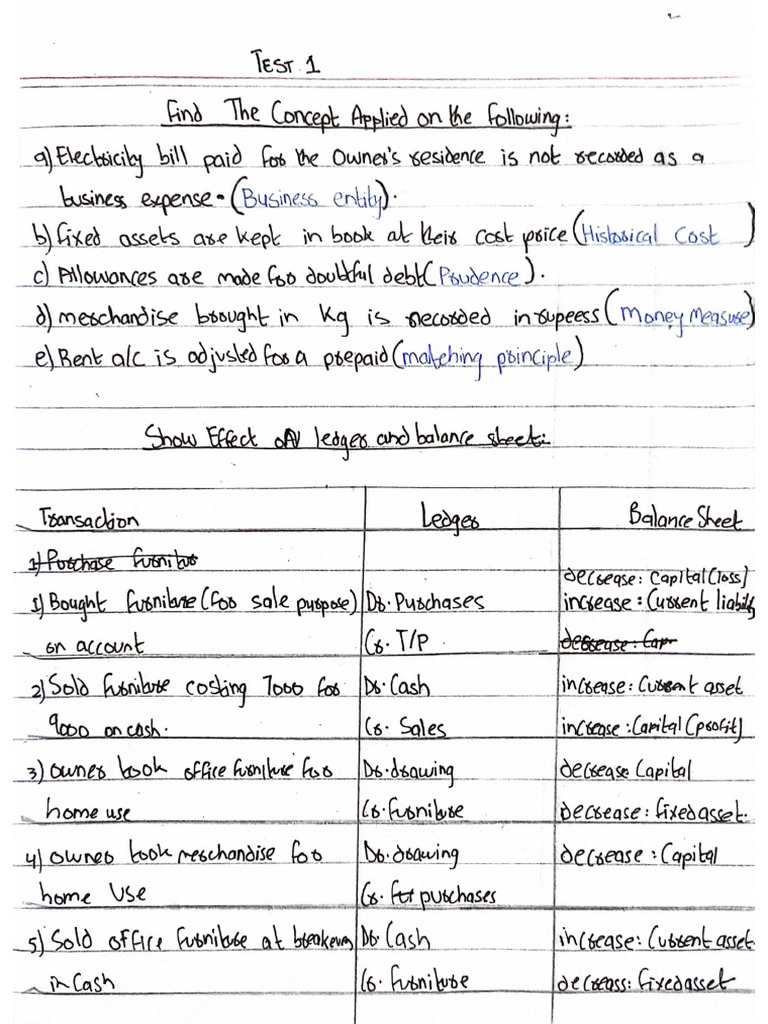 TEST 1
Find The Concept Applied on the Following:
a) Electricity bill paid for the Owner's residence is not recorded as a
business expense - (Business entity).
b) Fixed assets are kept in book at their cost price (Historical Cost)
c) Allowances are made for doubtful debt (Prudence).
d) merchandise brought in Kg is recorded in rupeess (Money Measure)
e) Rent a/c is adjusted for a prepaid (matching principle)
Show Effect on ledger and balance sheet:
Transaction Ledger Balance Sheet
1) Purchase furnitur
decrease: Capital (loss)
1) Bought furniture (for sale purpose) Dr. Purchases increase: Current liability
on account Cr. T/P decrease: Cap
2) Sold furniture costing 7000 for Dr. Cash increase: Current asset
9000 on cash. Cr. Sales increase: Capital (profit)
3) Owner took office furniture for Dr. drawing decrease Capital
home use Cr. furniture decrease: fixed asset.
4) Owner took merchandise for Dr. drawing decrease: Capital
home Use Cr. purchases
5) Sold office furniture at breakeven Dr. Cash increase: Current asset
in Cash Cr. furniture decreass: fixed asset